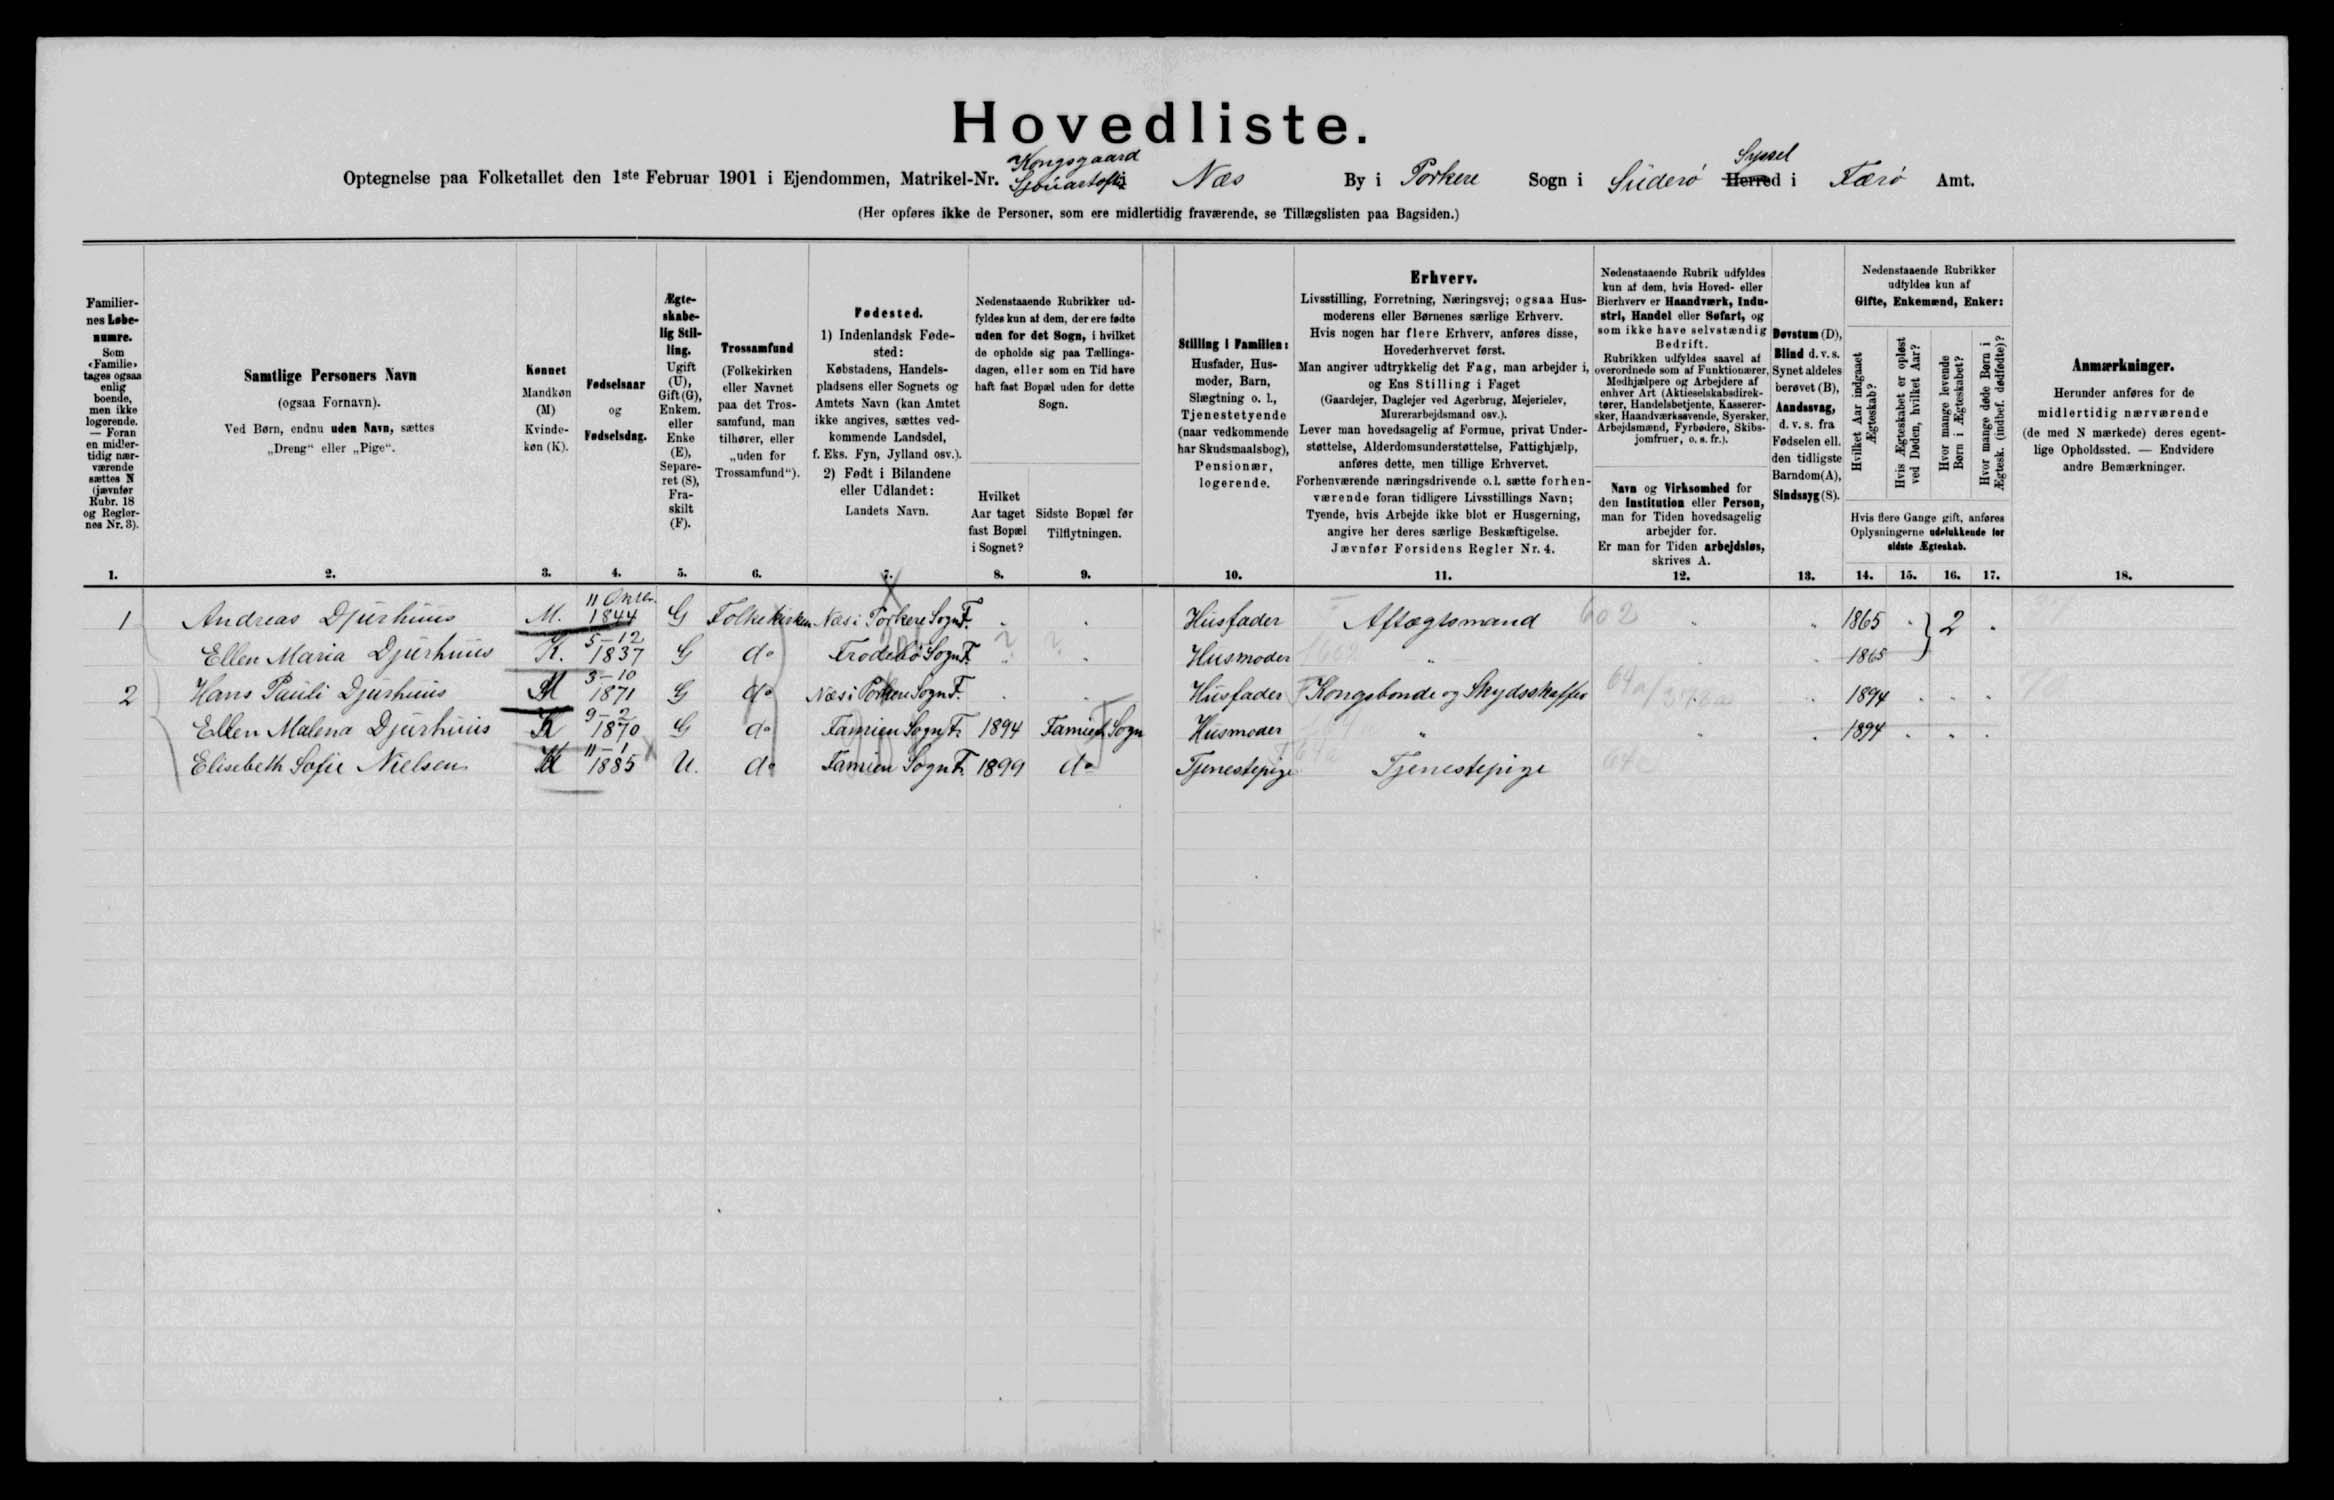 Hovedliste.
Kongsgaard Syssel
Optegnelse paa Folketallet den 1ste Februar 1901 i Ejendommen, Matrikel-Nr. Næs By i Porkere Sogn i Süderø Herred i Færø Amt.
(Her opføres ikke de Personer, som ere midlertidig fraværende, se Tillægslisten paa Bagsiden.)
Familier-
nes Løbe-
numre.
Som
«Familie»
tages ogsaa
enlig
boende,
men ikke
logerende.
— Foran
en midler-
tidig nær-
værende
sættes N
(jævnfør
Rubr. 18
og Regler-
nes Nr. 3).
1.
Samtlige Personers Navn
(ogsaa Fornavn).
Ved Børn, endnu uden Navn, sættes
„Dreng“ eller „Pige“.
2.
Kønnet
Mandkøn
(M)
Kvinde-
køn (K).
3.
Fødselsaar
og
Fødselsdag.
4.
Ægte-
skabe-
lig Stil-
ling.
Ugift
(U),
Gift (G),
Enkem.
eller
Enke
(E),
Separe-
ret (S),
Fra-
skilt
(F).
5.
Trossamfund
(Folkekirken
eller Navnet
paa det Tros-
samfund, man
tilhører, eller
„uden for
Trossamfund“).
6.
Fødested.
1) Indenlandsk Føde-
sted:
Købstadens, Handels-
pladsens eller Sognets og
Amtets Navn (kan Amtet
ikke angives, sættes ved-
kommende Landsdel,
f. Eks. Fyn, Jylland osv.).
2) Født i Bilandene
eller Udlandet:
Landets Navn.
7.
Nedenstaaende Rubrikker ud-
fyldes kun af dem, der ere fødte
uden for det Sogn, i hvilket
de opholde sig paa Tællings-
dagen, eller som en Tid have
haft fast Bopæl uden for dette
Sogn.
Hvilket
Aar taget
fast Bopæl
i Sognet?
8.
Sidste Bopæl før
Tilflytningen.
9.
Stilling i Familien:
Husfader, Hus-
moder, Barn,
Slægtning o. l.,
Tjenestetyende
(naar vedkommende
har Skudsmaalsbog),
Pensionær,
logerende.
10.
Erhverv.
Livsstilling, Forretning, Næringsvej; ogsaa Hus-
moderens eller Børnenes særlige Erhverv.
Hvis nogen har flere Erhverv, anføres disse,
Hovederhvervet først.
Man angiver udtrykkelig det Fag, man arbejder i,
og Ens Stilling i Faget
(Gaardejer, Daglejer ved Agerbrug, Mejerielev,
Murerarbejdsmand osv.).
Lever man hovedsagelig af Formue, privat Under-
støttelse, Alderdomsunderstøttelse, Fattighjælp,
anføres dette, men tillige Erhvervet.
Forhenværende næringsdrivende o.l. sætte forhen-
værende foran tidligere Livsstillings Navn;
Tyende, hvis Arbejde ikke blot er Husgerning,
angive her deres særlige Beskæftigelse.
Jævnfør Forsidens Regler Nr. 4.
11.
Nedenstaaende Rubrik udfyldes
kun af dem, hvis Hoved- eller
Bierhverv er Haandværk, Indu-
stri, Handel eller Søfart, og
som ikke have selvstændig
Bedrift.
Rubrikken udfyldes saavel af
overordnede som af Funktionærer,
Medhjælpere og Arbejdere af
enhver Art (Aktieselskabsdirek-
tører, Handelsbetjente, Kasserer-
sker, Haandværkssvende, Syersker,
Arbejdsmænd, Fyrbødere, Skibs-
jomfruer, o. s. fr.).
Navn og Virksomhed for
den Institution eller Person,
man for Tiden hovedsagelig
arbejder for.
Er man for Tiden arbejdsløs,
skrives A.
12.
Døvstum (D),
Blind d. v. s.
Synet aldeles
berøvet (B),
Aandssvag,
d. v. s. fra
Fødselen ell.
den tidligste
Barndom (A),
Sindssyg (S).
13.
Nedenstaaende Rubrikker
udfyldes kun af
Gifte, Enkemænd, Enker:
Hvilket Aar indgaaet
Ægteskab?
Hvis Ægteskabet er opløst
ved Døden, hvilket Aar?
Hvor mange levende
Børn i Ægteskabet?
Hvor mange døde Børn i
Ægtesk. (indbef. dødfødte)?
Hvis flere Gange gift, anføres
Oplysningerne udelukkende for
sidste Ægteskab.
14. 15. 16. 17.
Anmærkninger.
Herunder anføres for de
midlertidig nærværende
(de med N mærkede) deres egent-
lige Opholdssted. — Endvidere
andre Bemærkninger.
18.
1 Andreas Djurhuus M. 11 1844 G Folkekirken Næs i Porkere Sogn F. Husfader Aftægtsmand 602 1865 2
Ellen Maria Djurhuus K. 5-12 1837 G do Frodebø Sogn F. Husmoder " 1865
2 Hans Pauli Djurhuus M 3-10 1871 G do Næs i Porkere Sogn F. Husfader Kongsbonde og Skydsskaffer 1894
Ellen Malena Djurhuus K 9-2 1870 G do Famien Sogn F. 1894 Famien Sogn Husmoder " 1894
Elisebeth Sofie Nielsen K 11-1 1885 U. do Famien Sogn F. 1899 do Tjenestepige Tjenestepige